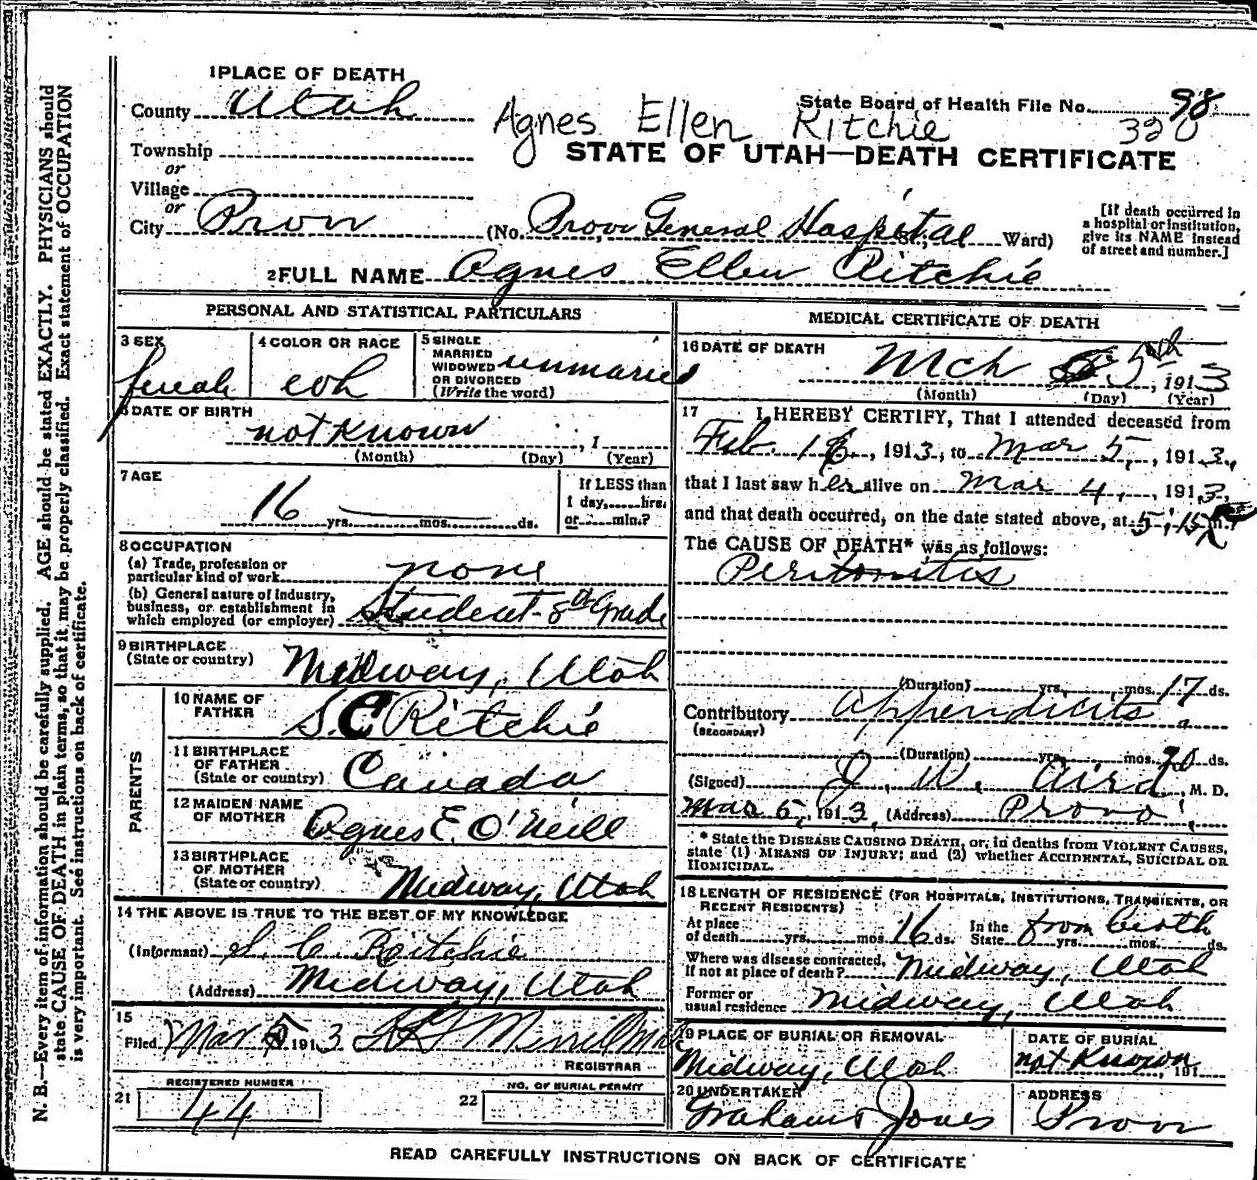 1 PLACE OF DEATH
County Utah
State Board of Health File No. 98
Agnes Ellen Ritchie 320
Township
or
STATE OF UTAH—DEATH CERTIFICATE
Village
or
City Provo (No. Provo General Hospital St.; Ward)
[If death occurred in a hospital or institution, give its NAME instead of street and number.]
2 FULL NAME Agnes Ellen Ritchie
PERSONAL AND STATISTICAL PARTICULARS
3 SEX female
4 COLOR OR RACE wh
5 SINGLE MARRIED WIDOWED OR DIVORCED (Write the word) unmaried
6 DATE OF BIRTH
not Known , 1
(Month) (Day) (Year)
7 AGE
16 yrs. mos. ds.
If LESS than 1 day, hrs. or min.?
8 OCCUPATION
(a) Trade, profession or particular kind of work none
(b) General nature of industry, business, or establishment in which employed (or employer) Student - 8th Grade
9 BIRTHPLACE
(State or country) Midway, Utah
PARENTS
10 NAME OF FATHER S. C Ritchie
11 BIRTHPLACE OF FATHER (State or country) Canada
12 MAIDEN NAME OF MOTHER Agnes E. O'Neill
13 BIRTHPLACE OF MOTHER (State or country) Midway, Utah
14 THE ABOVE IS TRUE TO THE BEST OF MY KNOWLEDGE
(Informant) S. C. Ritchie
(Address) Midway, Utah
15
Filed Mar 1913 Merrill
REGISTRAR
REGISTERED NUMBER
21 44
NO. OF BURIAL PERMIT
22
MEDICAL CERTIFICATE OF DEATH
16 DATE OF DEATH
Mch 5th, 1913
(Month) (Day) (Year)
17 I HEREBY CERTIFY, That I attended deceased from
Feb. 16, 1913, to Mar 5, 1913,
that I last saw her alive on Mar 4, 1913,
and that death occurred, on the date stated above, at 5:15 m.
The CAUSE OF DEATH* was as follows:
Peritonitis
(Duration) yrs. mos. 17 ds.
Contributory Appendicits
(SECONDARY)
(Duration) yrs. mos. 20 ds.
(Signed) J. W. Aird, M. D.
Mar 5, 1913, (Address) Provo
* State the DISEASE CAUSING DEATH, or, in deaths from VIOLENT CAUSES, state (1) MEANS OF INJURY; and (2) whether ACCIDENTAL, SUICIDAL OR HOMICIDAL.
18 LENGTH OF RESIDENCE (FOR HOSPITALS, INSTITUTIONS, TRANSIENTS, OR RECENT RESIDENTS)
At place of death yrs. mos. 16 ds. In the State from birth yrs. mos. ds.
Where was disease contracted, If not at place of death? Midway, Utah
Former or usual residence Midway, Utah
19 PLACE OF BURIAL OR REMOVAL
Midway, Utah
DATE OF BURIAL
not Known, 191
20 UNDERTAKER
Graham & Jones
ADDRESS
Provo
READ CAREFULLY INSTRUCTIONS ON BACK OF CERTIFICATE
N. B.—Every item of information should be carefully supplied. AGE should be stated EXACTLY. PHYSICIANS should
state CAUSE OF DEATH in plain terms, so that it may be properly classified. Exact statement of OCCUPATION
is very important. See instructions on back of certificate.